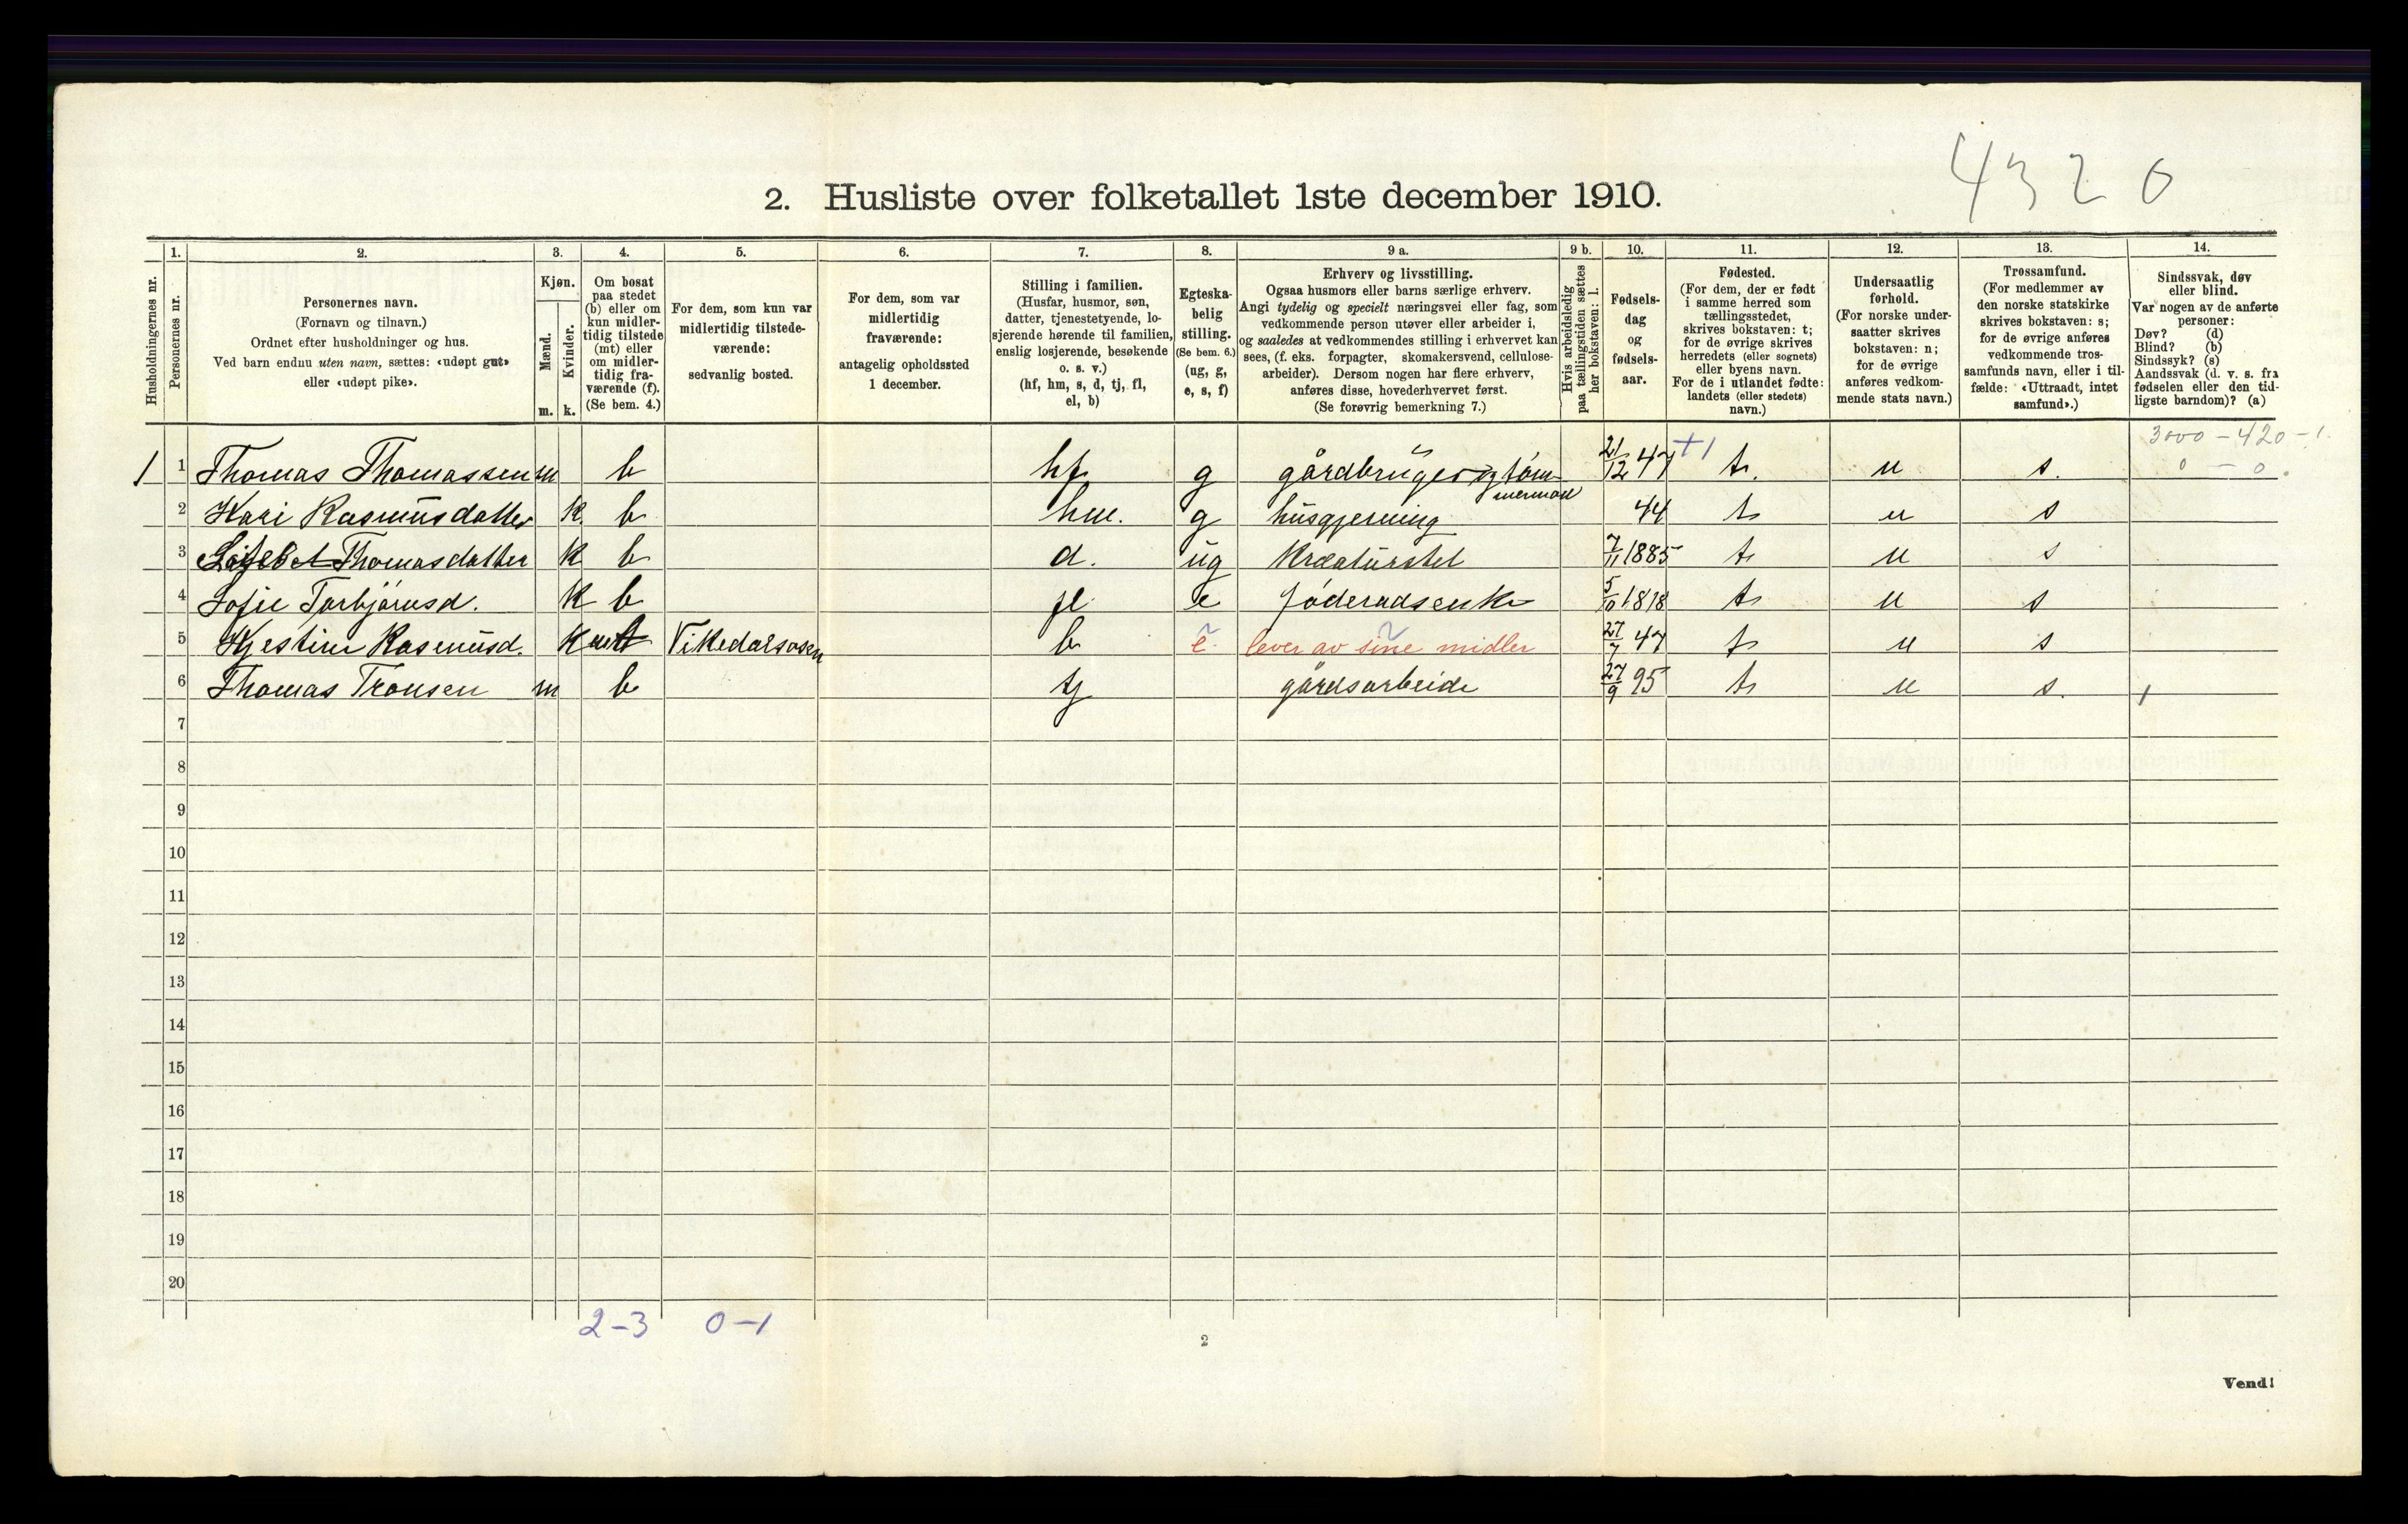 4320
2. Husliste over folketallet 1ste december 1910.
1. 2. 3. 4. 5. 6. 7. 8. 9 a. 9 b. 10. 11. 12. 13. 14.
Husholdningernes nr.
Personernes nr.
Personernes navn.
(Fornavn og tilnavn.)
Ordnet efter husholdninger og hus.
Ved barn endnu uten navn, sættes: «udøpt gut»
eller «udøpt pike».
Kjøn.
Mænd.
Kvinder.
m. k.
Om bosat
paa stedet
(b) eller om
kun midler-
tidig tilstede
(mt) eller
om midler-
tidig fra-
værende (f).
(Se bem. 4.)
For dem, som kun var
midlertidig tilstede-
værende:
sedvanlig bosted.
For dem, som var
midlertidig
fraværende:
antagelig opholdssted
1 december.
Stilling i familien.
(Husfar, husmor, søn,
datter, tjenestetyende, lo-
sjerende hørende til familien,
enslig losjerende, besøkende
o. s. v.)
(hf, hm, s, d, tj, fl,
el, b)
Egteska-
belig
stilling.
(Se bem. 6.)
(ug, g,
e, s, f)
Erhverv og livsstilling.
Ogsaa husmors eller barns særlige erhverv.
Angi tydelig og specielt næringsvei eller fag, som
vedkommende person utøver eller arbeider i,
og saaledes at vedkommendes stilling i erhvervet kan
sees, (f. eks. forpagter, skomakersvend, cellulose-
arbeider). Dersom nogen har flere erhverv,
anføres disse, hovederhvervet først.
(Se forøvrig bemerkning 7.)
Hvis arbeidsledig
paa tællingstiden sættes
her bokstaven: l.
Fødsels-
dag
og
fødsels-
aar.
Fødested.
(For dem, der er født
i samme herred som
tællingsstedet,
skrives bokstaven: t;
for de øvrige skrives
herredets (eller sognets)
eller byens navn.
For de i utlandet fødte:
landets (eller stedets)
navn.)
Undersaatlig
forhold.
(For norske under-
saatter skrives
bokstaven: n;
for de øvrige
anføres vedkom-
mende stats navn.)
Trossamfund.
(For medlemmer av
den norske statskirke
skrives bokstaven: s;
for de øvrige anføres
vedkommende tros-
samfunds navn, eller i til-
fælde: «Uttraadt, intet
samfund».)
Sindssvak, døv
eller blind.
Var nogen av de anførte
personer:
Døv? (d)
Blind? (b)
Sindssyk? (s)
Aandssvak (d. v. s. fra
fødselen eller den tid-
ligste barndom)? (a)
3000 - 420 - 1.
0 - 0.
1 1 Thomas Thomassen m b hf g gårdbruger og tøm- 21/12 47 +1 t. n s.
mermand
2 Kari Rasmusdatter k. b hm. g husgjerning 44 t n s
3 Thomasdatter k b d. ug Kreaturstel 7/11 1885 t n s
4 Sofie Torbjørnsd. k b fl e föderadsenke 5/10 1818 t n s
5 Kjestine Rasmusd. k mt Vikedalsosen b e lever av sine midler 27/7 47 t n s
6 Thomas Tronsen m b tj gårdsarbeide 27/9 95 t n s.
7
8
9
10
11
12
13
14
15
16
17
18
19
20
2-3 0-1
2
Vend!